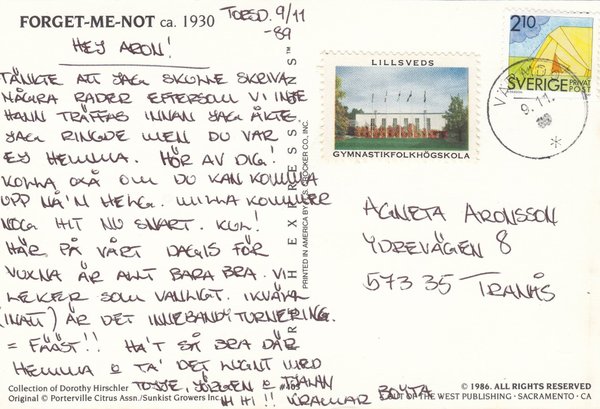 FORGET-ME-NOT ca. 1930
TORSD. 9/11
-89
HEJ ARON!
TÄNKTE ATT JAG SKULLE SKRIVA
NÅGRA RADER EFTERSOM VI INTE
HANN TRÄFFAS INNAN JAG ÅKTE.
JAG RINGDE MEN DU VAR
EJ HEMMA. HÖR AV DIG!
KOLLA OXÅ OM DU KAN KOMMA
UPP NÅ'N HELG. MILLA KOMMER
NOG HIT NU SNART. KUL!
HÄR PÅ VÅRT DAGIS FÖR
VUXNA ÄR ALLT BARA BRA. VI
LEKER SOM VANLIGT. IKVÄLL
(INATT) ÄR DET INNEBANDYTURNERING.
= FÄÄST!! HA'T SÅ BRA DÄR
HEMMA & TA' DET LUGNT MED
TOJJE, JÖRGEN &
IH HI!! KRAMAR
Collection of Dorothy Hirschler
Original © Porterville Citrus Assn./Sunkist Growers Inc.
#405
PRINTED IN AMERICA BY H.S. CROCKER CO., INC.
LILLSVEDS
GYMNASTIKFOLKHÖGSKOLA
210
SVERIGE PRIVAT
POST
9.11.
AGNETA ARONSSON
YDREVÄGEN 8
573 35 TRANÅS
© 1986. ALL RIGHTS RESERVED
OUT OF THE WEST PUBLISHING · SACRAMENTO · CA